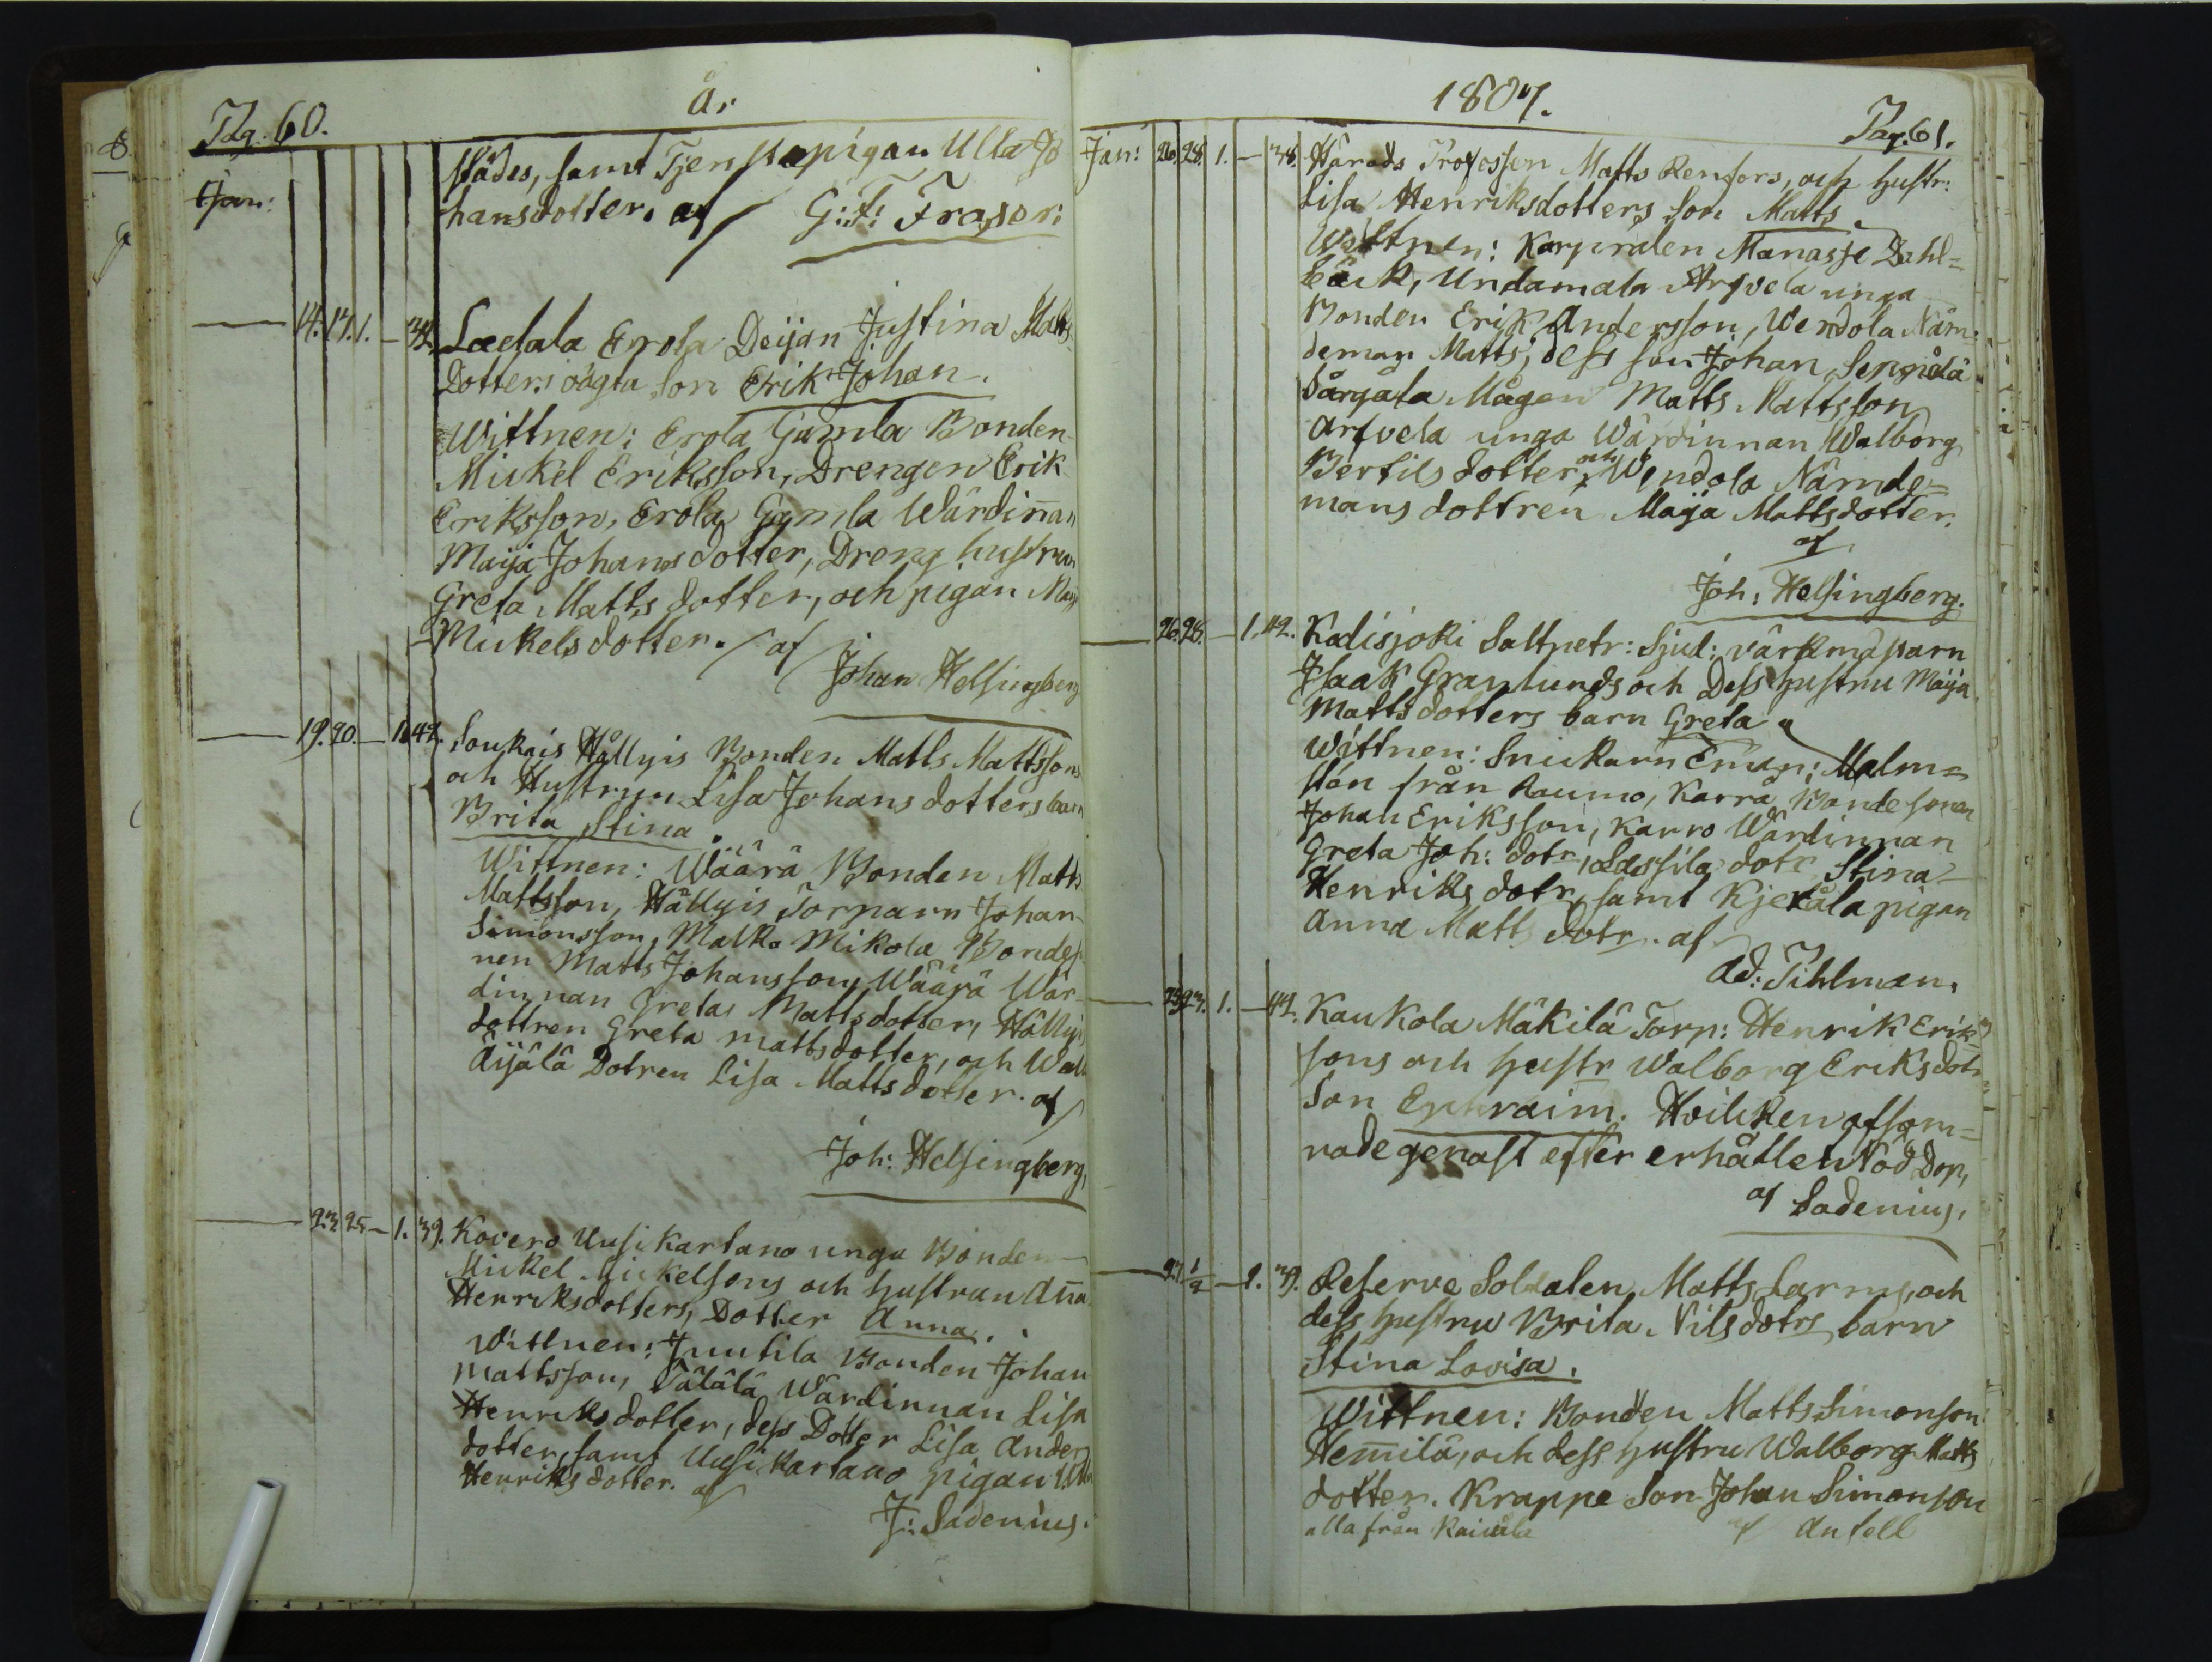 Pag. 60.
år
Jan:
städes, samt Tjenstepigan Ulla Jo
hansdotter. af G: F: Fraser:
14. 17. 1. —
Laedala Erola Deijan Justina Matts
Dotters oägta son Erik Johan.
Wittnen: Erola Gamla Bonden
Mickel Eriksson, Drengen Erik
Eriksson, Erola Gamla Wärdiñan
Maija Johansdotter, Dreng hustrun
Greta Mattsdotter, och pigan Maija
Mickelsdotter. af
Johan Helsingberg
19. 20. — 1. 42.
Soukais Hällyis Bonden Matts Mattssons
och Hustrun Lisa Johansdotters barn
Brita Stina.
Wittnen: Wäärä Bonden Matts
Mattsson, Hällyis Torparn Johan
Simonsson, Malko Mikola Bondeso
nen Matts Johansson, Wäärä Wär-
dinnan Greta Mattsdotter, Hällyis
dottren Greta mattsdotter, och
Äijälä Dotren Lisa Mattsdotter. af
Joh: Helsingberg,
23. 25 — 1. 39.
Kovero Uusikartano unga Bonden
Mickel Mickelsons och hustrun Aña
Henriksdotters, Dotter Anna.
Wittnen: Juutila Bonden Johan
Mattsson, Tälälä Wärdinnan Lisa
Henriksdotter, dess Dotter Lisa Anders
dotter, samt Uusikartano pigan Ulla
Henriksdotter. af
J: Sadenius.
1807.
Pag. 61.
Jan: 26. 28. 1. — 38.
Härads Profossen Matts Renfors, och hustr:
Lisa Henriksdotters Son Matts.
Wittnen: Korpralen Manasse Dahl=
bäck, Undamala Arfvela unga
Bonden Erik Andersson, Wendola Näm=
deman Matts, dess son Johan,
Särgala Mågen Matts Mattsson
Arfvela unga Wärdinnan Walborg
Bertilsdotter, och Wendola Nämde=
mans dottren Maija Mattsdotter.
af
Joh: Helsingberg.
26. 28. — 1. 42.
Kodisjoki Saltpetr: Sjud: värkmästarn
Isaak Granlunds och Dess hustru Maija
Mattsdotters barn Greta
Wittnen: Snickarn Eman: Malm=
sten från Raumo, Karra Bondesonen
Johan Eriksson, Karro Wärdinnan
Greta Joh: dotr, Lassila dotr Stina
Henriks dotr, samt Kjeräla pigan
Anna Matts dotr. af
Ad: Tihlman.
23. 23. 1. — 42.
Kaukola Mäkilä Torp: Henrik Erik-
sons och hustr Walborg Eriksdotr
Son Ephraim. Hvilcken afsom=
nade genast efter erhållen Nöd Dop,
af Sadenius,
27. 1/2 — 1. 39.
Reserve Soldaten Matts Larms, och
dess hustru Brita Nilsdotrs barn
Stina Lovisa.
Wittnen: Bonden Matts Simonson
Hem̃ilä, och dess hustru Walborg Matts
dotter. Krappe Son Johan Simonson
alla från Raiwala af Antell